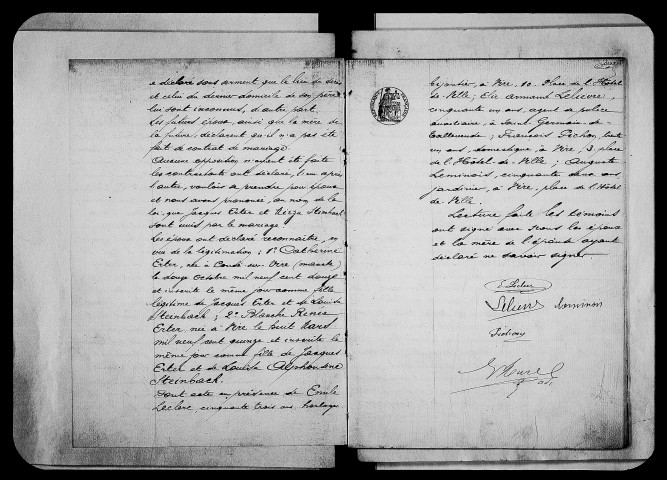 a déclaré sous serment que le lieu du décès
et celui du dernier domicile de son père
lui sont inconnus, d'autre part.
Les futurs époux, ainsi que la mère de
la future, déclarent qu'il n'a pas été
fait de contrat de mariage.
Aucune opposition n'ayant été faite
les contractants ont déclaré, l'un après
l'autre, vouloir se prendre pour époux
et nous avons prononcé, au nom de la
loi, que Jacques Erter et Steinbach
sont unis par le mariage.
Les époux ont déclaré reconnaître, en
vue de la légitimation ; 1° Catherine
Erter, née à Condé-sur-Vire (Manche)
le douze Octobre mil neuf cent douze
et inscrite le même jour comme fille
légitime de Jacques Erter et de Louise
Steinbach ; 2° Blanche Renée
Erter, née à Vire le huit Mars
mil neuf cent quinze et inscrite le
même jour comme fille de Jacques
Erter et de Louise Alphonsine
Steinbach.
Dont acte en présence de Emile
Leclerc, cinquante trois ans, horloger
à Vire, 10, Place de l'Hôtel
de-Ville ; Armand Lelièvre,
cinquante un ans, agent de police
auxiliaire, à Saint Germain-de-
Tallevende ; François Pichon,
un ans, domestique, à Vire, 3, place
de l'Hôtel-de-Ville ; Auguste
Leminois, cinquante deux ans,
jardinier, à Vire, place de l'Hôtel
de-Ville.
Lecture faite les témoins
ont signé avec Nous les époux
et la mère de l'épouse ayant
déclaré ne savoir signer.
Pichon